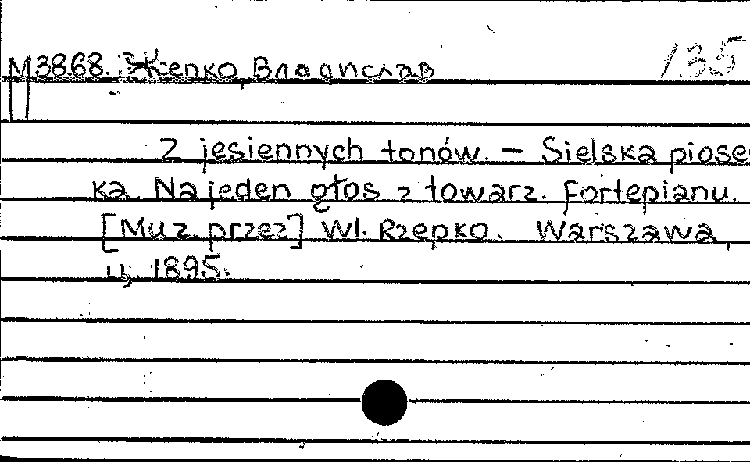 M3868. Жепко, Владислав 135
Z jesiennych tonów. – Sielska piose
ka. Na jeden głos z towarz. fortepianu.
[Muz. przez] Wł. Rzepko. Warszawa,
u, 1895.